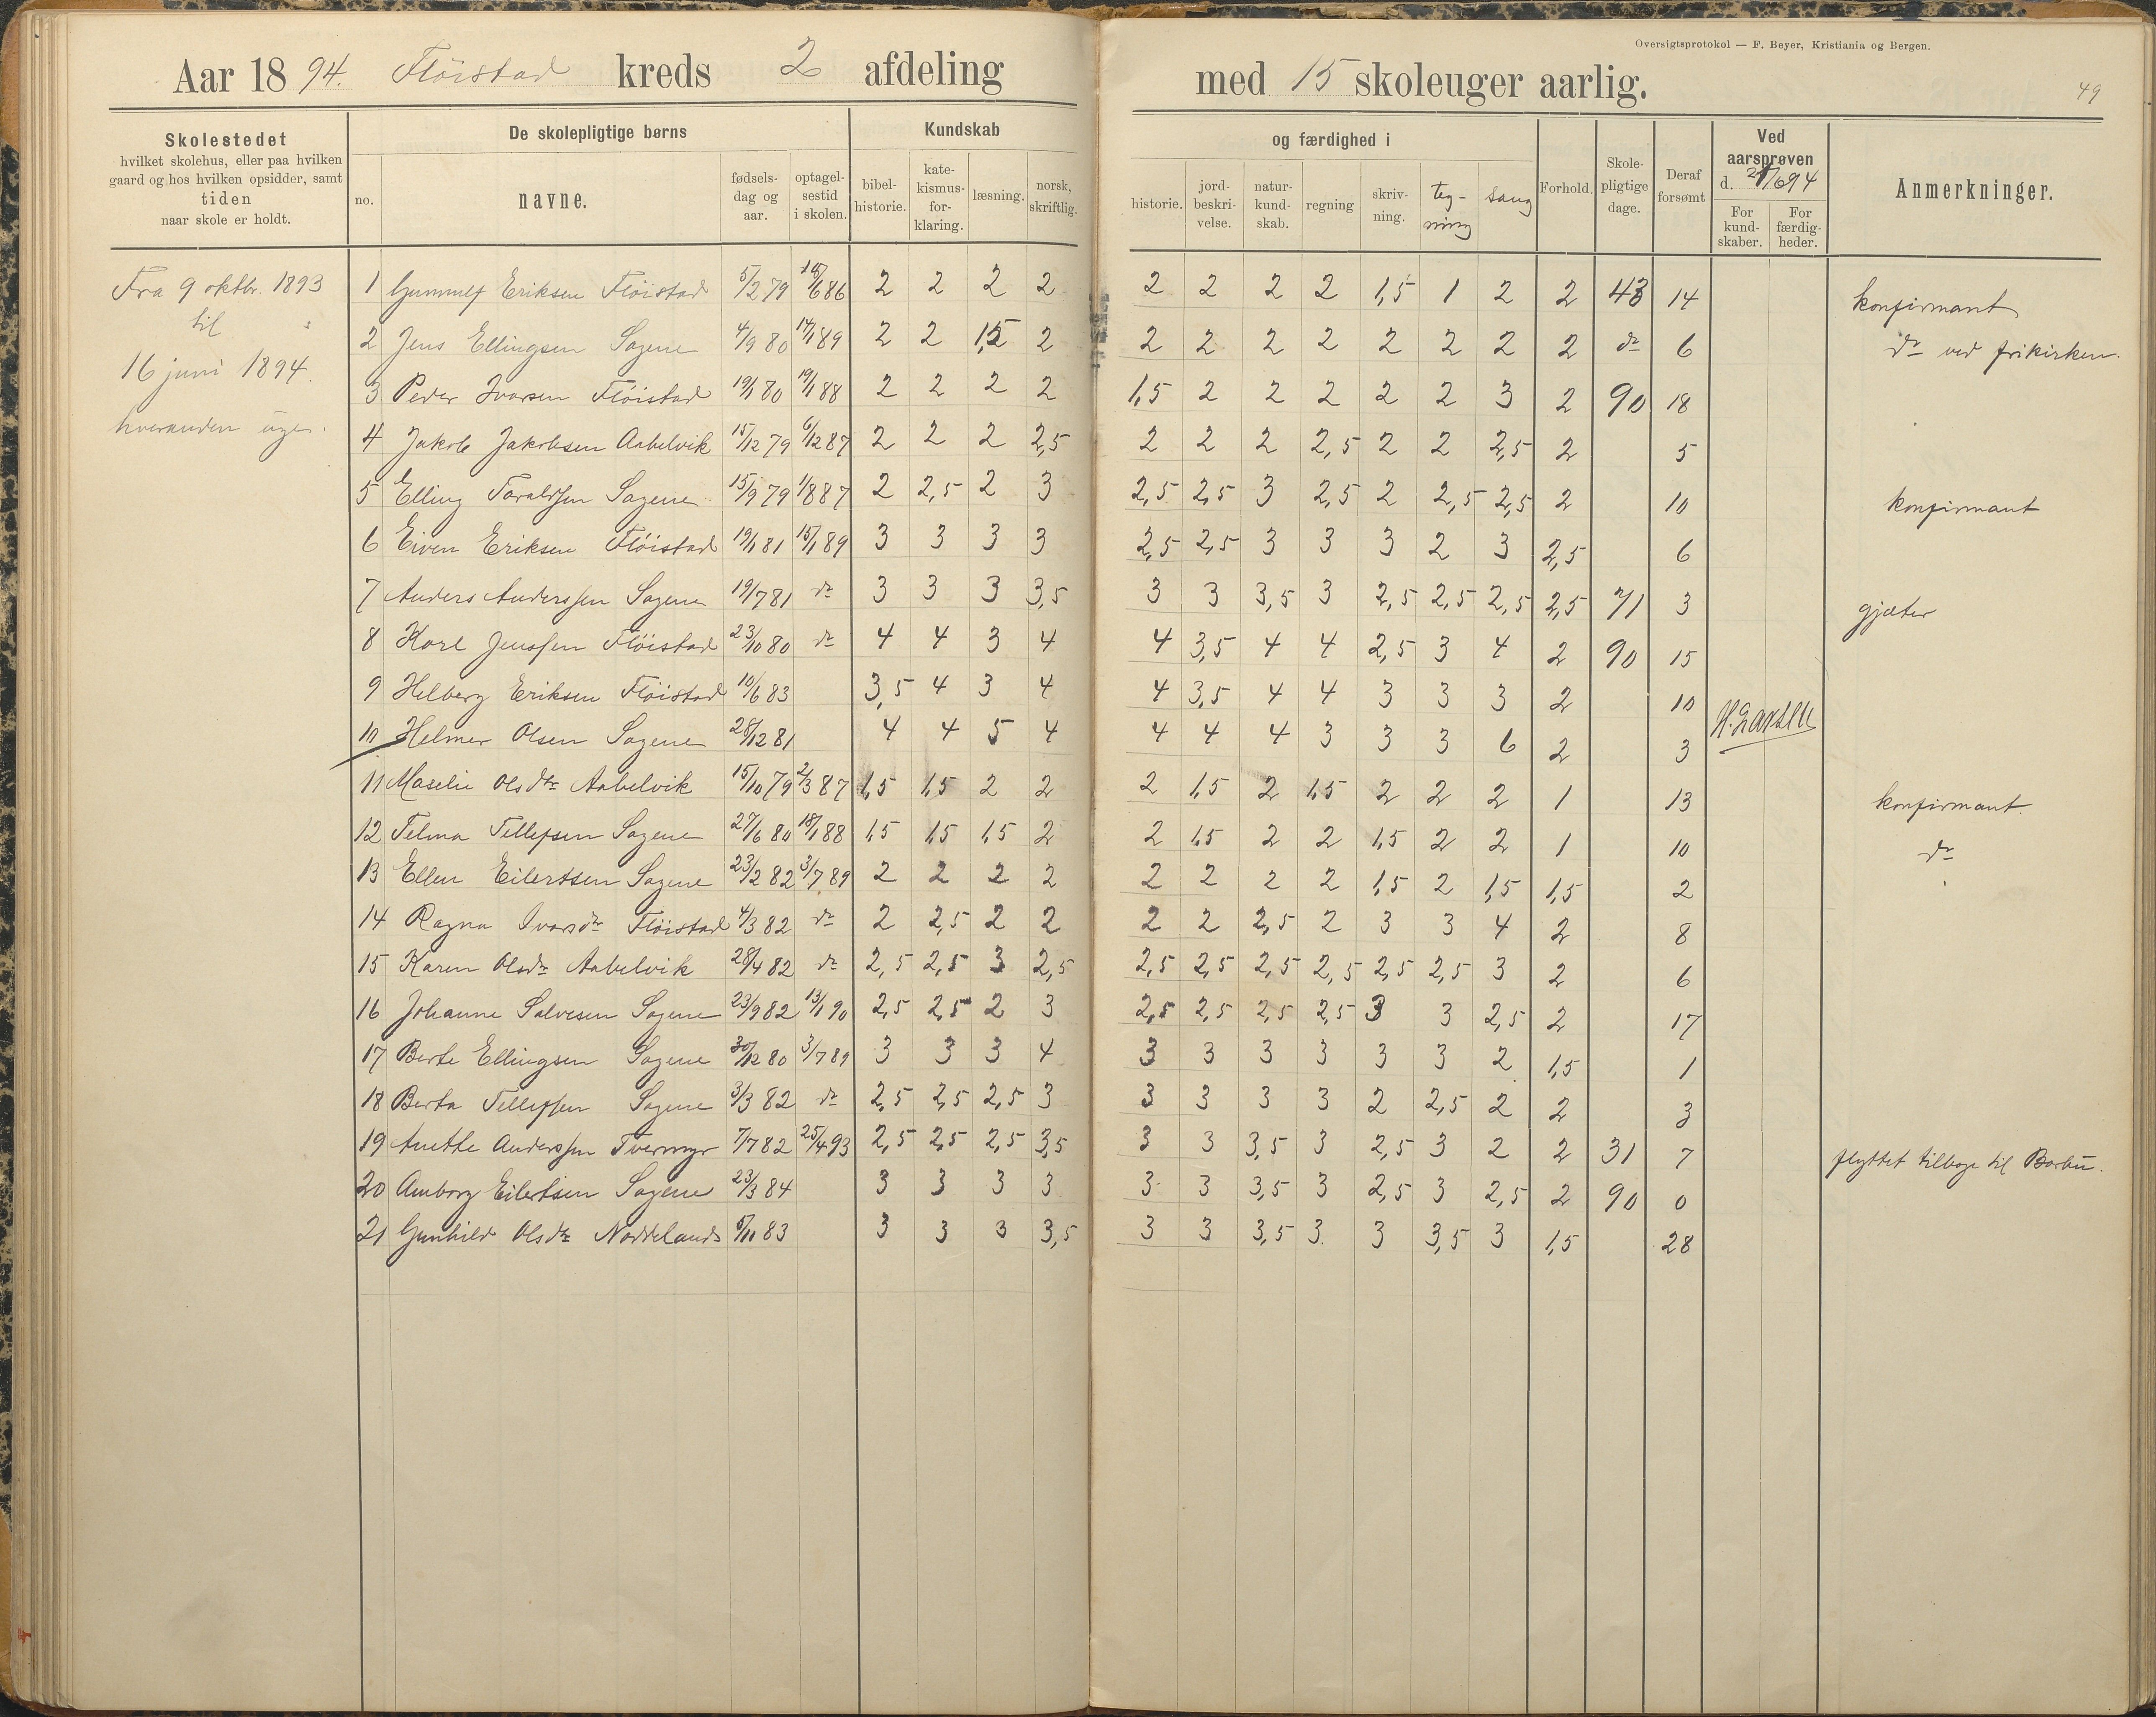 Oversigtsprotokol — F. Beyer, Kristiania og Bergen.
Aar 1894. Flöistad kreds 2 afdeling med 15 skoleuger aarlig.
49
Skolestedet
hvilket skolehus, eller paa hvilken
gaard og hos hvilken opsidder, samt
tiden
naar skole er holdt.
De skolepligtige børns
no. navne. fødsels-dag og aar. optagel-sestid i skolen.
Kundskab og færdighed i
bibel-historie. kate-kismus-for-klaring. læsning. norsk, skriftlig. historie. jord-beskri-velse. natur-kund-skab. regning skriv-ning. teg-ning sang
Forhold. Skole-pligtige dage. Deraf forsømt
Ved aarsprøven d. 21/6 94
For kund-skaber. For færdig-heder.
Anmerkninger.
Fra 9 oktbr. 1893
til
16 juni 1894.
hveranden uge.
1 Gunnulf Eriksen Flöistad 5/2 79 16/6 86 2 2 2 2 2 2 2 2 1,5 1 2 2 43 14 konfirmant
2 Jens Ellingsen Sagene 4/9 80 14/1 89 2 2 1,5 2 2 2 2 2 2 2 2 2 do 6 do ved frikirken.
3 Peder Ivarsen Flöistad 19/1 80 19/1 88 2 2 2 2 1,5 2 2 2 2 2 3 2 90 18
4 Jakob Jakobsen Aabelvik 15/12 79 6/12 87 2 2 2 2,5 2 2 2 2,5 2 2 2,5 2 5
5 Elling Toraldsen Sagene 15/9 79 1/8 87 2 2,5 2 3 2,5 2,5 3 2,5 2 2,5 2,5 2 10 konfirmant
6 Eiven Eriksen Flöistad 19/1 81 15/1 89 3 3 3 3 2,5 2,5 3 3 3 2 3 2,5 6
7 Anders Anderssen Sagene 19/7 81 do 3 3 3 3,5 3 3 3,5 3 2,5 2,5 2,5 2,5 71 3 gjæter
8 Karl Jenssen Flöistad 23/10 80 do 4 4 3 4 4 3,5 4 4 2,5 3 4 2 90 15
9 Helberg Eriksen Flöistad 10/6 83 3,5 4 3 4 4 3,5 4 4 3 3 3 2 10
10 Helmer Olsen Sagene 28/12 81 4 4 5 4 4 4 4 3 3 3 6 2 3 H. Larsen
11 Maselie Olsdtr Aabelvik 15/10 79 2/3 87 1,5 1,5 2 2 2 1,5 2 1,5 2 2 2 1 13 konfirmant.
12 Telma Tellefsen Sagene 27/6 80 18/1 88 1,5 1,5 1,5 2 2 1,5 2 2 1,5 2 2 1 10 do
13 Ellen Eilertsen Sagene 23/2 82 3/7 89 2 2 2 2 2 2 2 2 1,5 2 1,5 1,5 2
14 Ragna Ivarsdr Flöistad 4/3 82 do 2 2,5 2 2 2 2 2,5 2 3 3 4 2 8
15 Karen Olsdr Aabelvik 28/4 82 do 2,5 2,5 3 2,5 2,5 2,5 2,5 2,5 2,5 2,5 3 2 6
16 Johanne Salvesen Sagene 23/9 82 13/1 90 2,5 2,5 2 3 2,5 2,5 2,5 2,5 3 3 2,5 2 17
17 Berte Ellingsen Sagene 30/12 80 3/7 89 3 3 3 4 3 3 3 3 3 3 2 1,5 1
18 Berta Tellefsen Sagene 3/3 82 do 2,5 2,5 2,5 3 3 3 3 3 2 2,5 2 2 3
19 Anethe Anderssen Tvermyr 7/7 82 25/4 93 2,5 2,5 2,5 3,5 3 3 3,5 3 2,5 3 2 2 31 7 flyttet tilbage til Barbu.
20 Amborg Eilertsen Sagene 23/3 84 3 3 3 3 3 3 3,5 3 2,5 3 2,5 2 90 0
21 Gunhild Olsdtr Noddelands 5/11 83 3 3 3 3,5 3 3 3,5 3 3 3,5 3 1,5 28